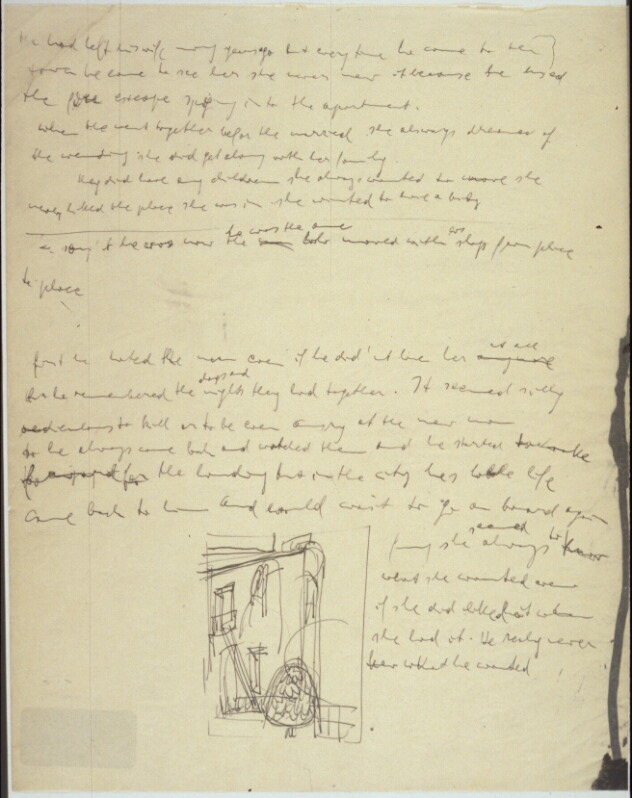 He had left his wife many years ago but every time he came to
town he came to see her she never knew it because he used
the fire escape spying into the apartment.
when the went together before the married she always dreamed of
the wedding she did get along with her family
they did have any children she always wanted to move she
never liked the place she was in she wanted to have a baby
he was the one
now the moved with ships from place
to place
first he hated the man even if he did'nt love her at all anymore
days and
he remembered the nights they had together. It seemed silly
to kill or to be even angry at the new man
so he always came back and watched them and he started to make
forward for the landing but in the city his whole life
came back to him and could wait to go on board again
funny she seemed always to know
what she wanted even
if she did liked it when
she had it. He really never
knew what he wanted